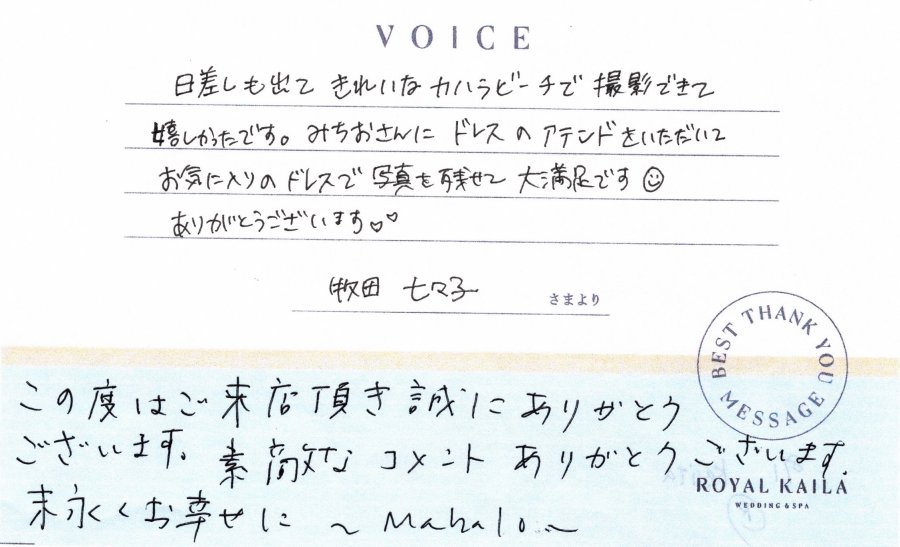 VOICE
日差しも出て きれいな カハラビーチで 撮影できて
嬉しかったです。みちおさんに ドレスの アテンドをいただいて
お気に入りのドレスで 写真を残せて 大満足です☺
ありがとうございます♡♡
牧田 七々子 さまより
BEST THANK YOU MESSAGE
この度はご来店頂き誠にありがとう
ございます。素敵なコメントありがとうございます。
末永くお幸せに 〜Mahalo〜
ROYAL KAILA
WEDDING & SPA